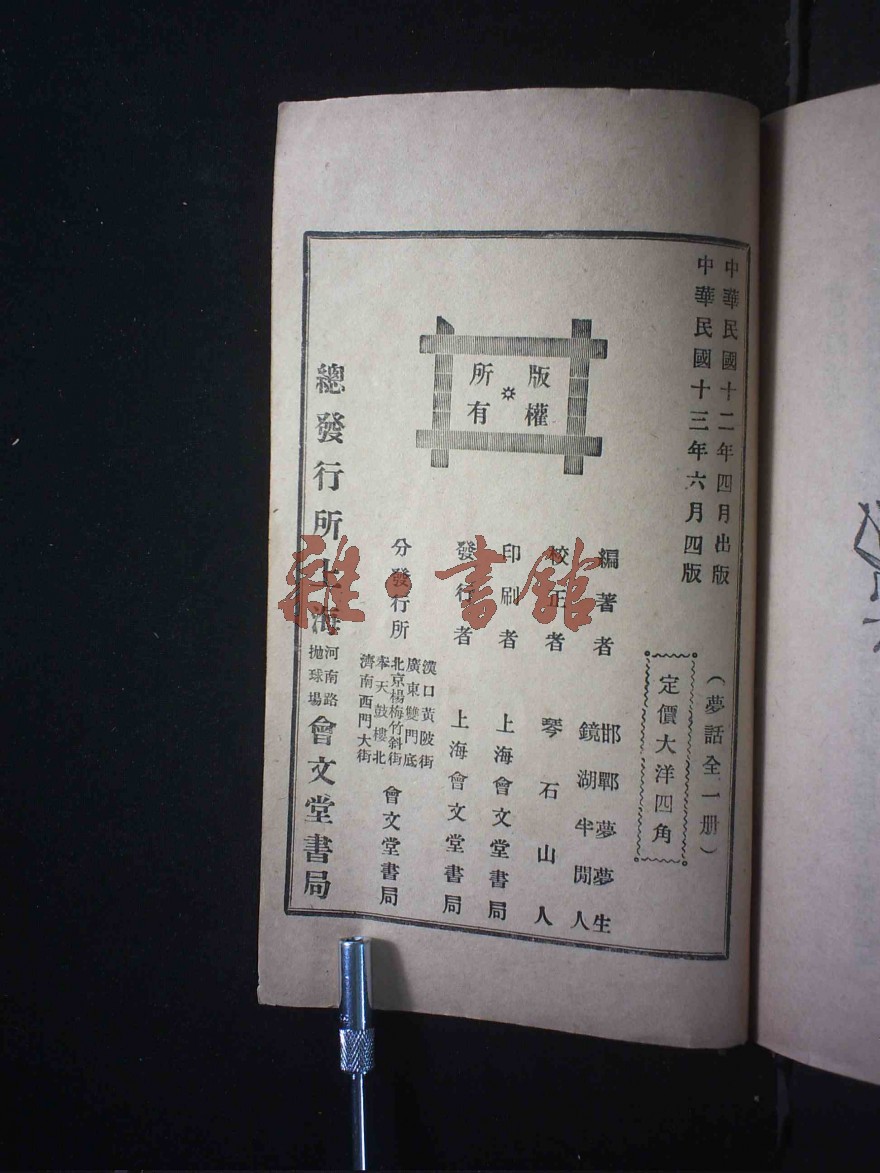 中華民國十二年四月出版
中華民國十三年六月四版
（夢話全一册）
定價大洋四角
編著者
邯鄲夢夢生
鏡湖半閒人
校正者 琴石山人
印刷者 上海會文堂書局
發行者 上海會文堂書局
分發行所
漢口黃陂街
廣東雙門底
北京楊梅竹斜街
奉天鼓樓北
濟南西門大街
會文堂書局
版權
所有
總發行所上海
河南路
拋球場
會文堂書局
雜·書館